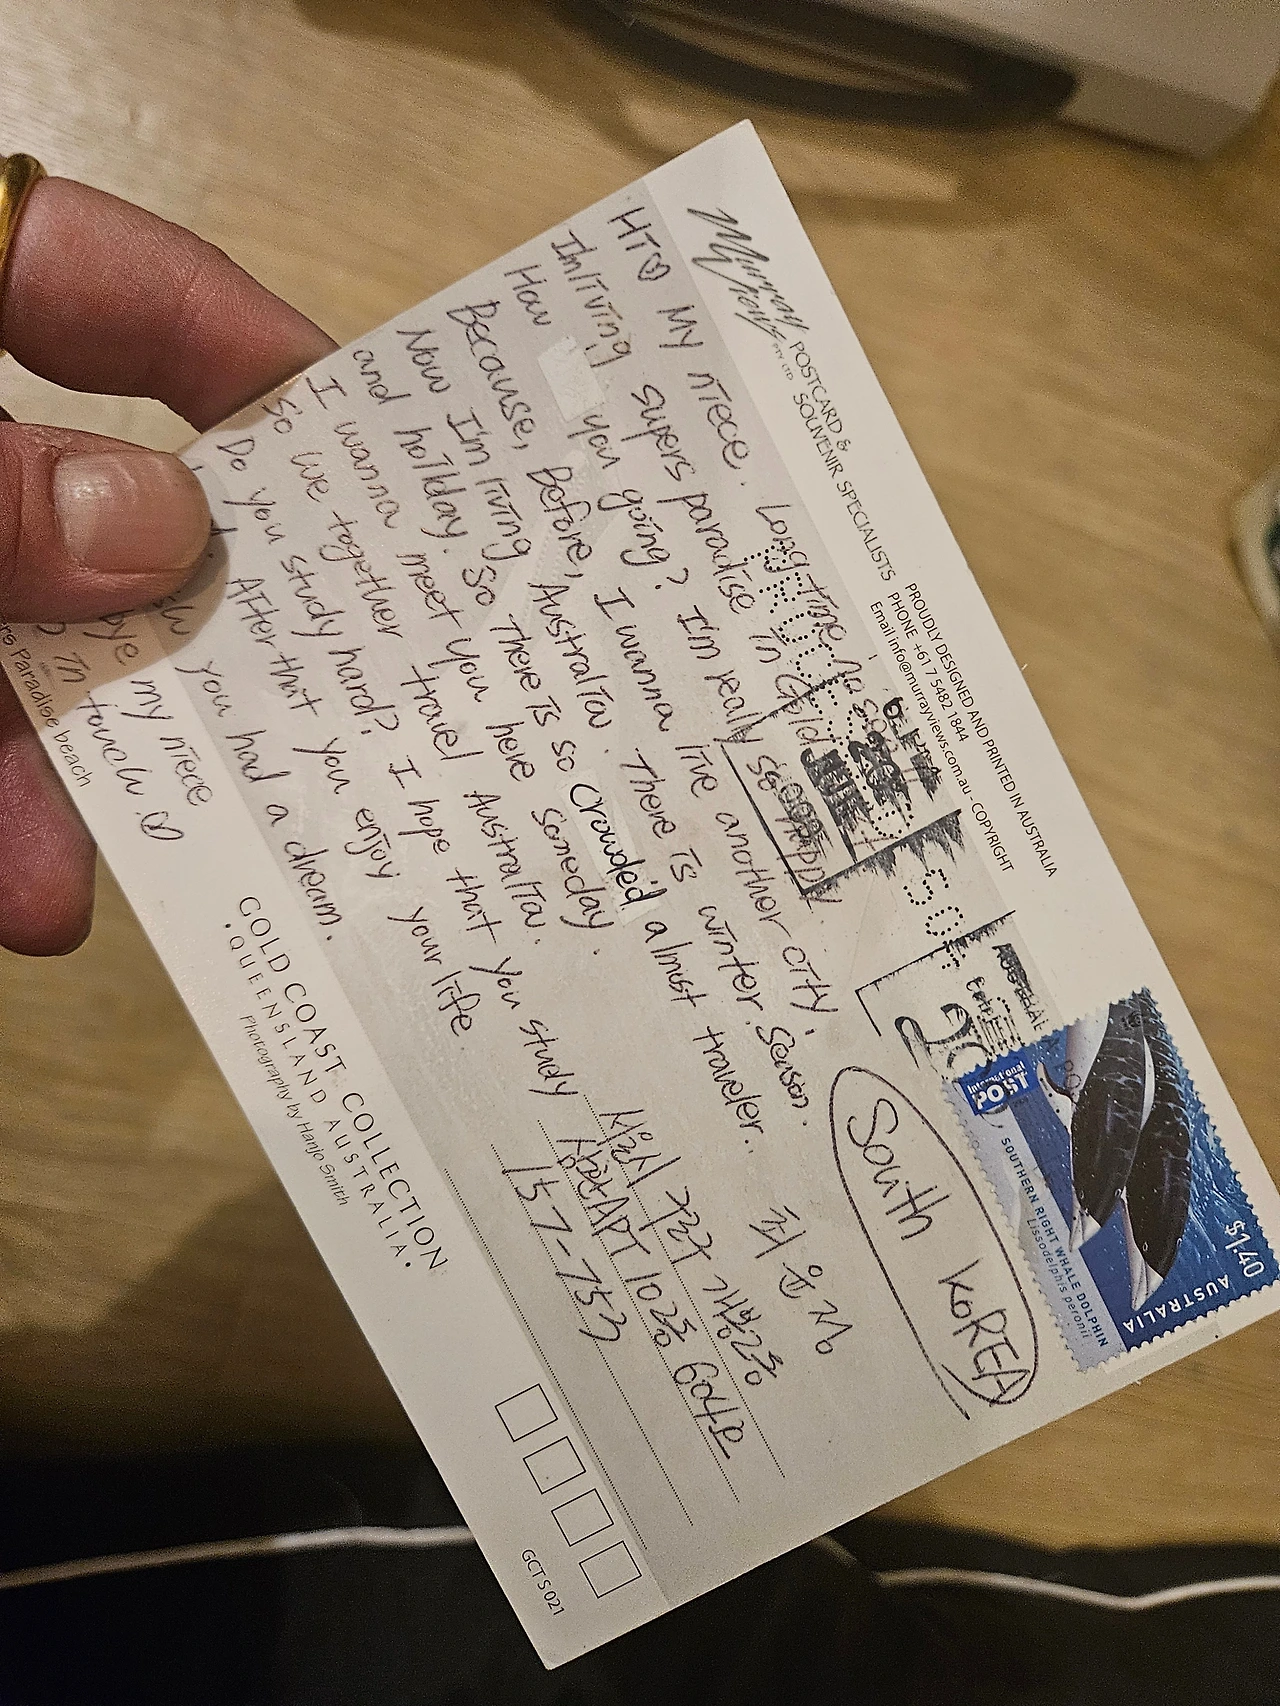 Murray Views PTY LTD
POSTCARD &
SOUVENIR SPECIALISTS
PROUDLY DESIGNED AND PRINTED IN AUSTRALIA
PHONE +61 7 5482 1844
Email info@murrayviews.com.au - COPYRIGHT
HI♡ My niece. Long time no see
I'm living supers paradise in Gold
How you going? I'm really so happy.
Because, Before, I wanna live another city.
Now I'm living Australia. There is winter season.
and holiday. So there is so crowded almost traveler.
I wanna meet you here someday.
So we together travel Australia.
Do you study hard? I hope that you study
After that you enjoy your life.
you had a dream.
bye my niece
in touch ♡
Paradise beach
International
POST
SOUTHERN RIGHT WHALE DOLPHIN
Lissodelphis peronii
$1.40
AUSTRALIA
South KOREA
최윤정
APT 102동 604호
157-753
GOLD COAST COLLECTION
• QUEENSLAND AUSTRALIA •
Photography by Hanjo Smith
GCTS021